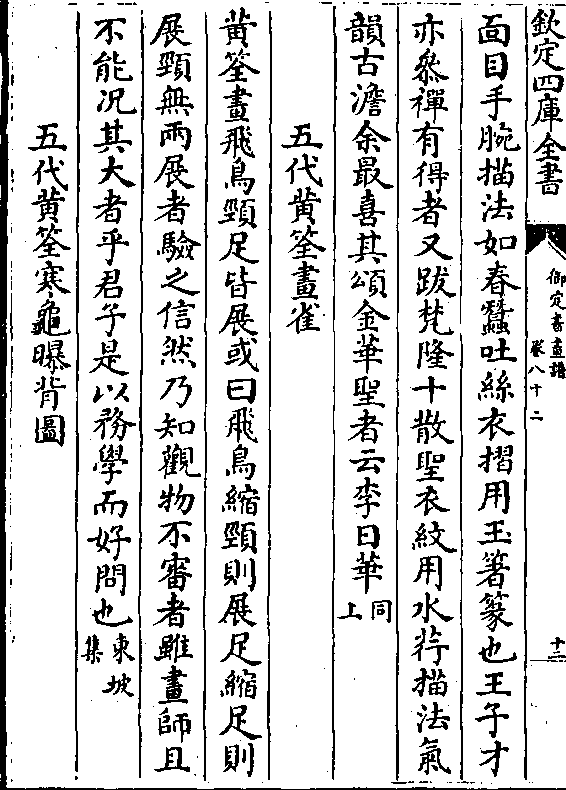 欽定四庫全書
御定書畫譜
卷八十二
十二
面目手腕描法如春蠶吐絲衣摺用玉箸篆也王子才
亦叅禪有得者又跋梵隆十散聖衣紋用水荇描法氣
韻古澹余最喜其頌金華聖者云李日華同上
五代黄筌畫雀
黄筌畫飛鳥頸足皆展或曰飛鳥縮頸則展足縮足則
展頸無兩展者驗之信然乃知觀物不審者雖畫師且
不能况其大者乎君子是以務學而好問也東坡集
五代黄筌寒龜曝背圖